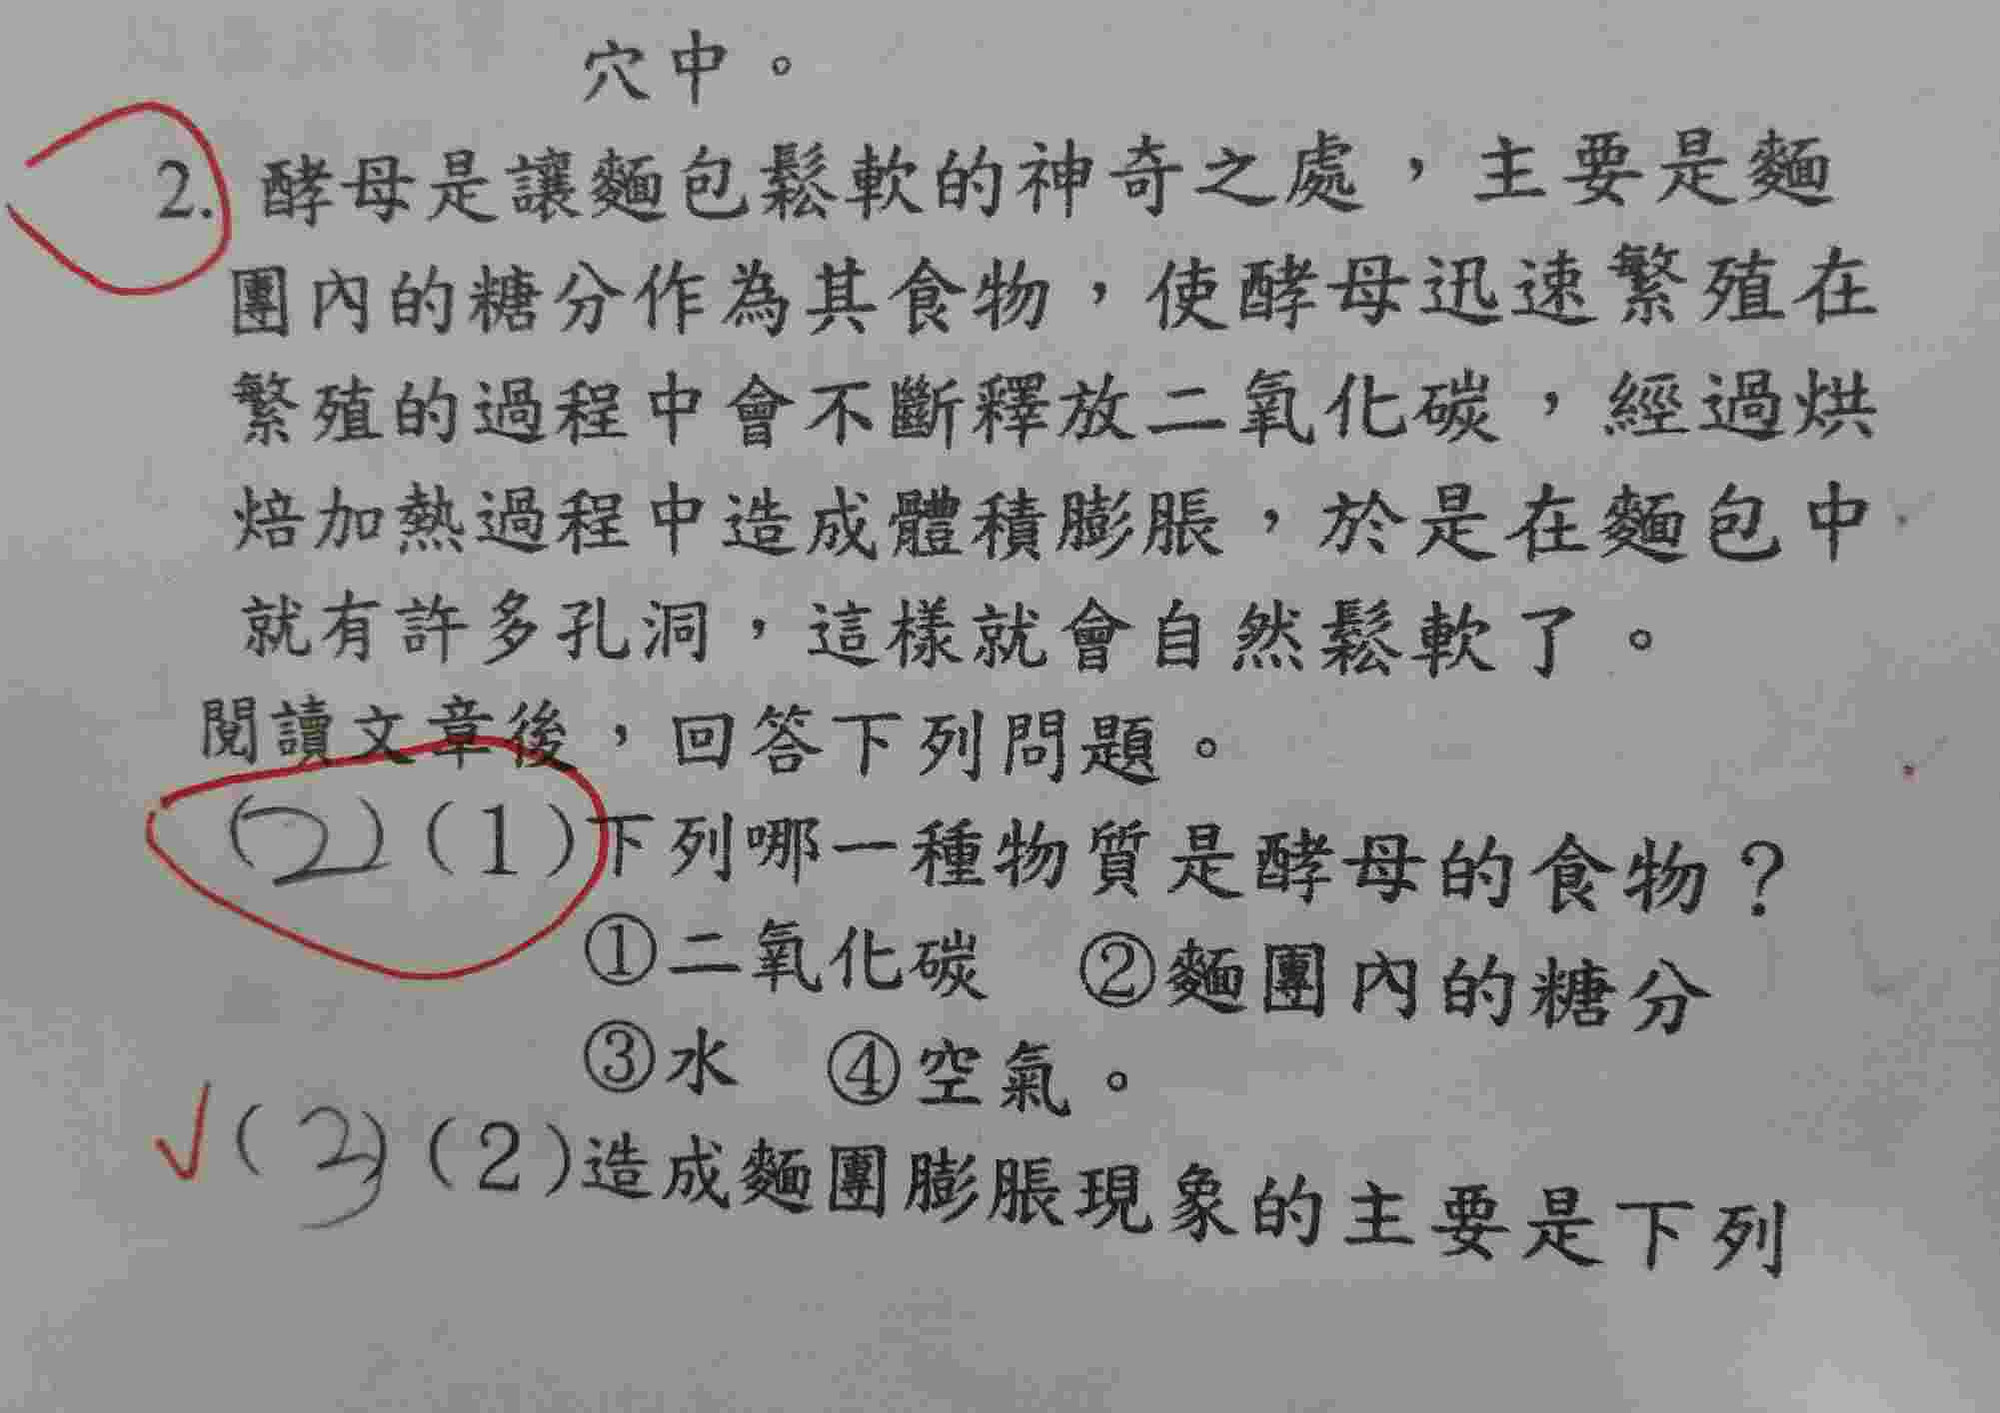 穴中。
2. 酵母是讓麵包鬆軟的神奇之處，主要是麵
團內的糖分作為其食物，使酵母迅速繁殖在
繁殖的過程中會不斷釋放二氧化碳，經過烘
焙加熱過程中造成體積膨脹，於是在麵包中
就有許多孔洞，這樣就會自然鬆軟了。
閱讀文章後，回答下列問題。
(2)(1)下列哪一種物質是酵母的食物？
①二氧化碳 ②麵團內的糖分
③水 ④空氣。
√(3)(2)造成麵團膨脹現象的主要是下列